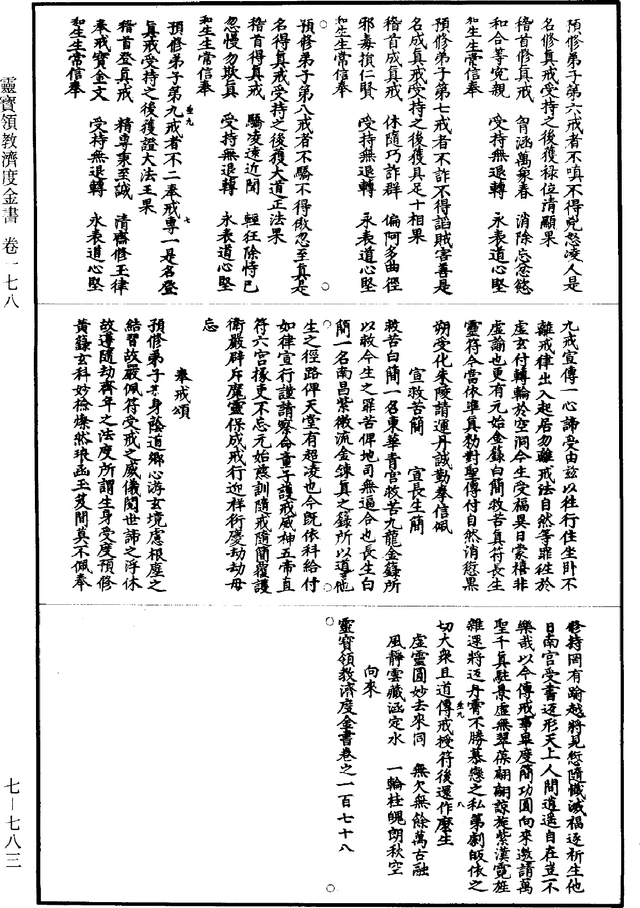 預修弟子第六戒者不嗔不得兇怒凌人是
名修真戒受持之後獲祿位清顯果
稽首修真戒　胷涵萬象春　消除忘忿慾
和合等冤親　受持無退轉　永表道心堅
和生生常信奉
預修弟子第七戒者不詐不得謟賊害善是
名成真戒受持之後獲具足十相果
稽首成真戒　休隨巧詐群　偏阿多曲徑
邪毒損仁賢　受持無退轉　永表道心堅
和生生常信奉
預修弟子第八戒者不驕不得傲忽至真是
名得真戒受持之後獲大道正法果
稽首得真戒　驕凌遠近聞　輕狂除恃巳
忽慢勿欺真　受持無退轉　永表道心堅
和生生常信奉
預修弟子第九戒者不二奉戒專一是名登
真戒受持之後獲證大法王果
稽首登真戒　精專秉至誠　清齋修玉律
奉戒寶金文　受持無退轉　永表道心堅
和生生常信奉
九戒宣傳一心諦受由茲以往行住坐卧不
離戒律出入起居勿離戒法自然等罪往於
虛玄付轉輪於空洞今生受福異日蒙禧非
虛諭也更有元始金籙白簡救苦真符長生
靈符今當依準真勑對聖傳付自然消愆果
朔受化朱陵請運丹誠勤奉信佩
宣救苦簡　宣長生簡
救苦白簡一名東華青宮救苦九龍金籙所
以赦今生之罪苦俾地司無逼合也長生白
簡一名南昌紫微流金鍊真之錄所以導他
生之徑路俾天堂有超凌也今既依科給付
如律宣行謹請察命童子護戒威神五帝直
符六宮掾吏不忘元始應訓隨戒隨簡覆護
衛嚴辟斥魔靈保成戒行迎祥衍慶劫劫毋
忘
奉戒頌
預修弟子某身蔭道鄉心游玄境慮根塵之
結習故嚴佩符受戒之威儀閱世諦之浮休
故遵隨劫齊年之法度所謂生身受度預修
黃籙玄科妙檢燦然琅函玉笈間莫不佩奉
修持罔有踰越將見愆隨懺滅福逐祈生他
日南宮受書迺形天上人間逍遥自在豈不
樂哉以今傳戒事畢度簡功圓向來邀請萬
聖千真駐景虛無翠葆翩翩諒旋紫漢霓旌
雜遝將迓丹霄不勝慕戀之私第劇皈依之
切大衆且道傳戒授符後還作麼生
虛靈圓妙去來同　無欠無餘萬古融
風靜雲藏涵定水　一輪桂魄朗秋空
向來
靈寶領教濟度金書卷之一百七十八
靈寶領教濟度金書　卷一七八
七－七八三